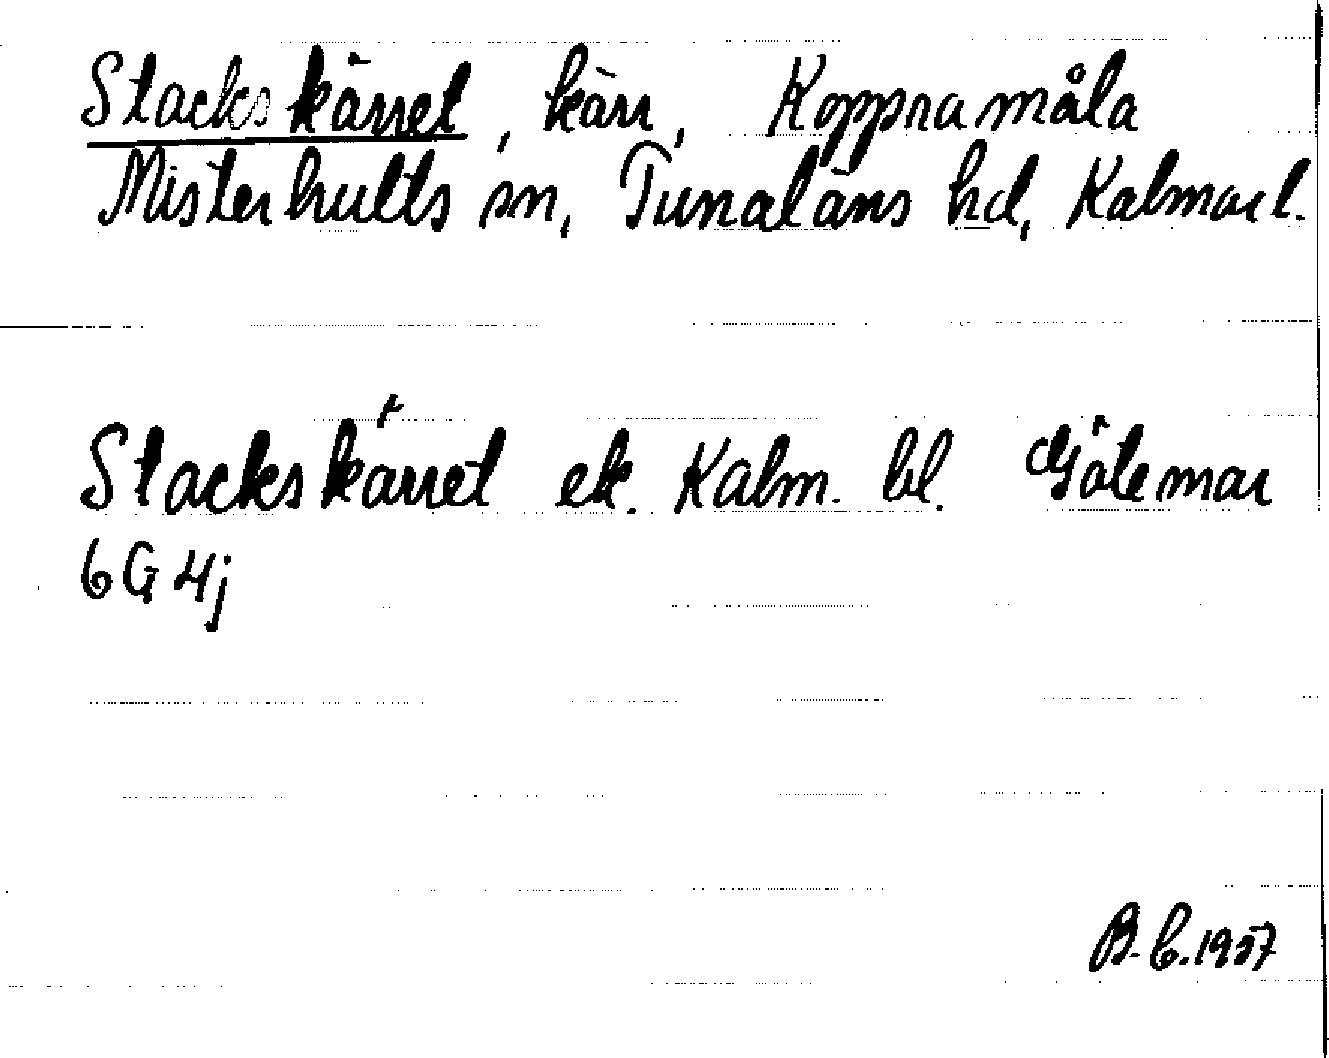 Stackskärret, kärr, Koppramåla
Misterhults sn, Tunaläns hd, Kalmar l.
Stackskärret ek. Kalm. bl. Götemar
6G 4j
B. C. 1957